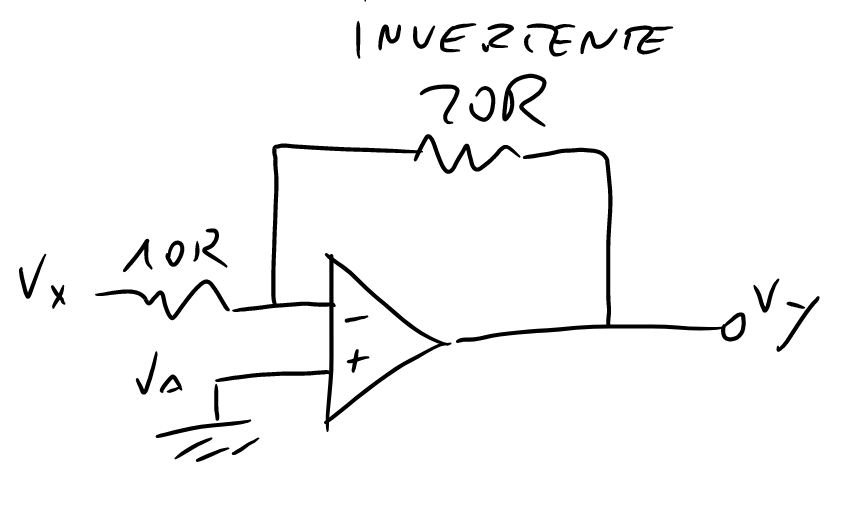 INVERTENTE
70R
10R
Vx
-
+
VA
Vy